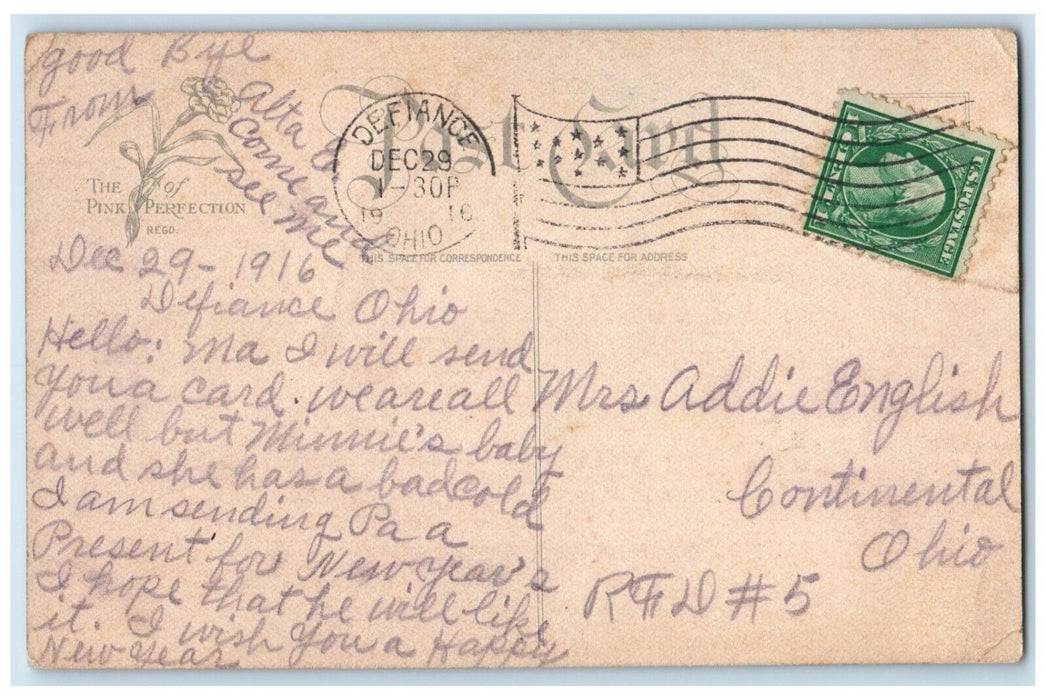 good Bye
From Alta E
Come and
see me
Post Card
THE of
PINK PERFECTION
REGD.
DEFIANCE
DEC 29
1-30P
19 16
OHIO
U.S. POSTAGE
THIS SPACE FOR CORRESPONDENCE
THIS SPACE FOR ADDRESS
Dec 29-1916
Defiance Ohio
Hello: Ma I will send
you a card. we are all
well but Minnie's baby
and she has a bad cold
I am sending Pa a
Present for New year's
I hope that he will like
it. I wish you a Happy
New year
Mrs Addie English
Continental
Ohio
RFD #5